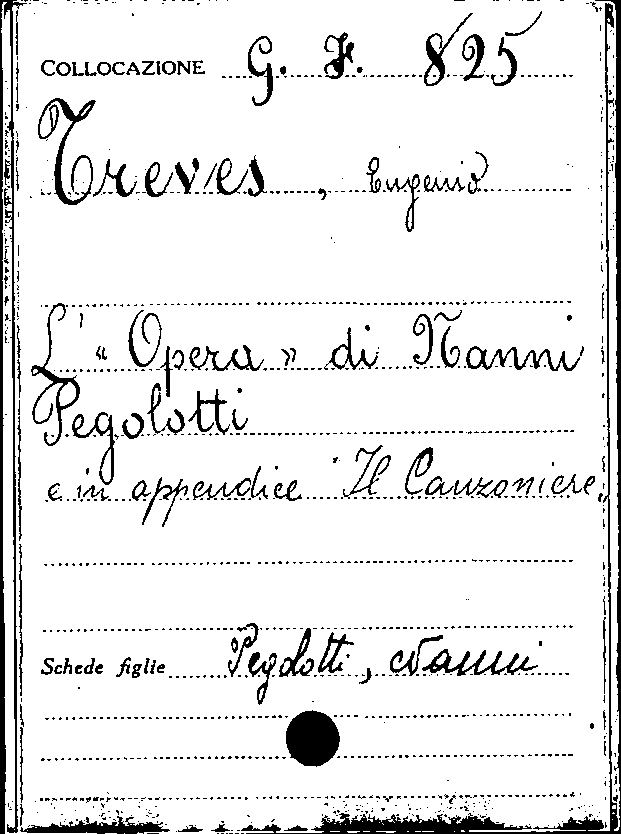 COLLOCAZIONE G. F. 825
Treves, Eugenio
L' « Opera » di Nanni
Pegolotti
e in appendice "Il Canzoniere"
Schede figlie Pegolotti, Nanni